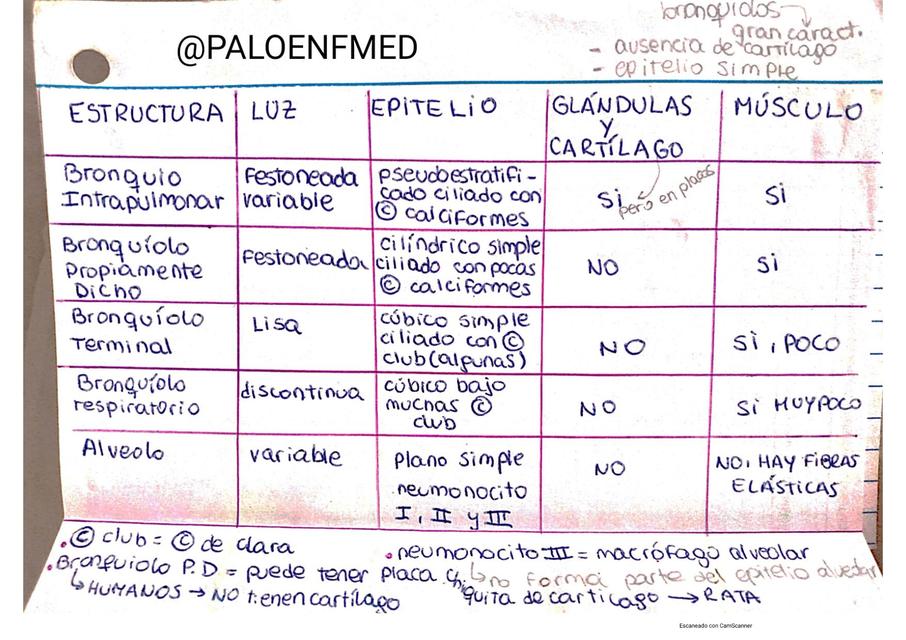 bronquiolos
gran caract.
- ausencia de cartílago
- epitelio simple
@PALOENFMED
ESTRUCTURA LUZ EPITELIO GLÁNDULAS Y CARTÍLAGO MÚSCULO
Bronquio Intrapulmonar
Festoneada variable
pseudoestratifi-
cado ciliado con
© calciformes
Si
pero en placas
Si
Bronquíolo
Propiamente
Dicho
Festoneada
cilíndrico simple
ciliado con pocas
© calciformes
NO
Si
Bronquíolo
Terminal
Lisa
cúbico simple
ciliado con ©
club (algunas)
NO
Si, POCO
Bronquíolo
respiratorio
discontinua
cúbico bajo
muchas ©
club
NO
Si MUY POCO
Alveolo
variable
plano simple
neumonocito
I, II y III
NO
NO, HAY FIBRAS
ELÁSTICAS
• © club = © de clara
• neumonocito III = macrófago alveolar
↳ no forma parte del epitelio alveolar
• Bronquiolo P.D = puede tener placa chi
quita de cartilago → RATA
↳ HUMANOS → NO tienen cartílago
Escaneado con CamScanner